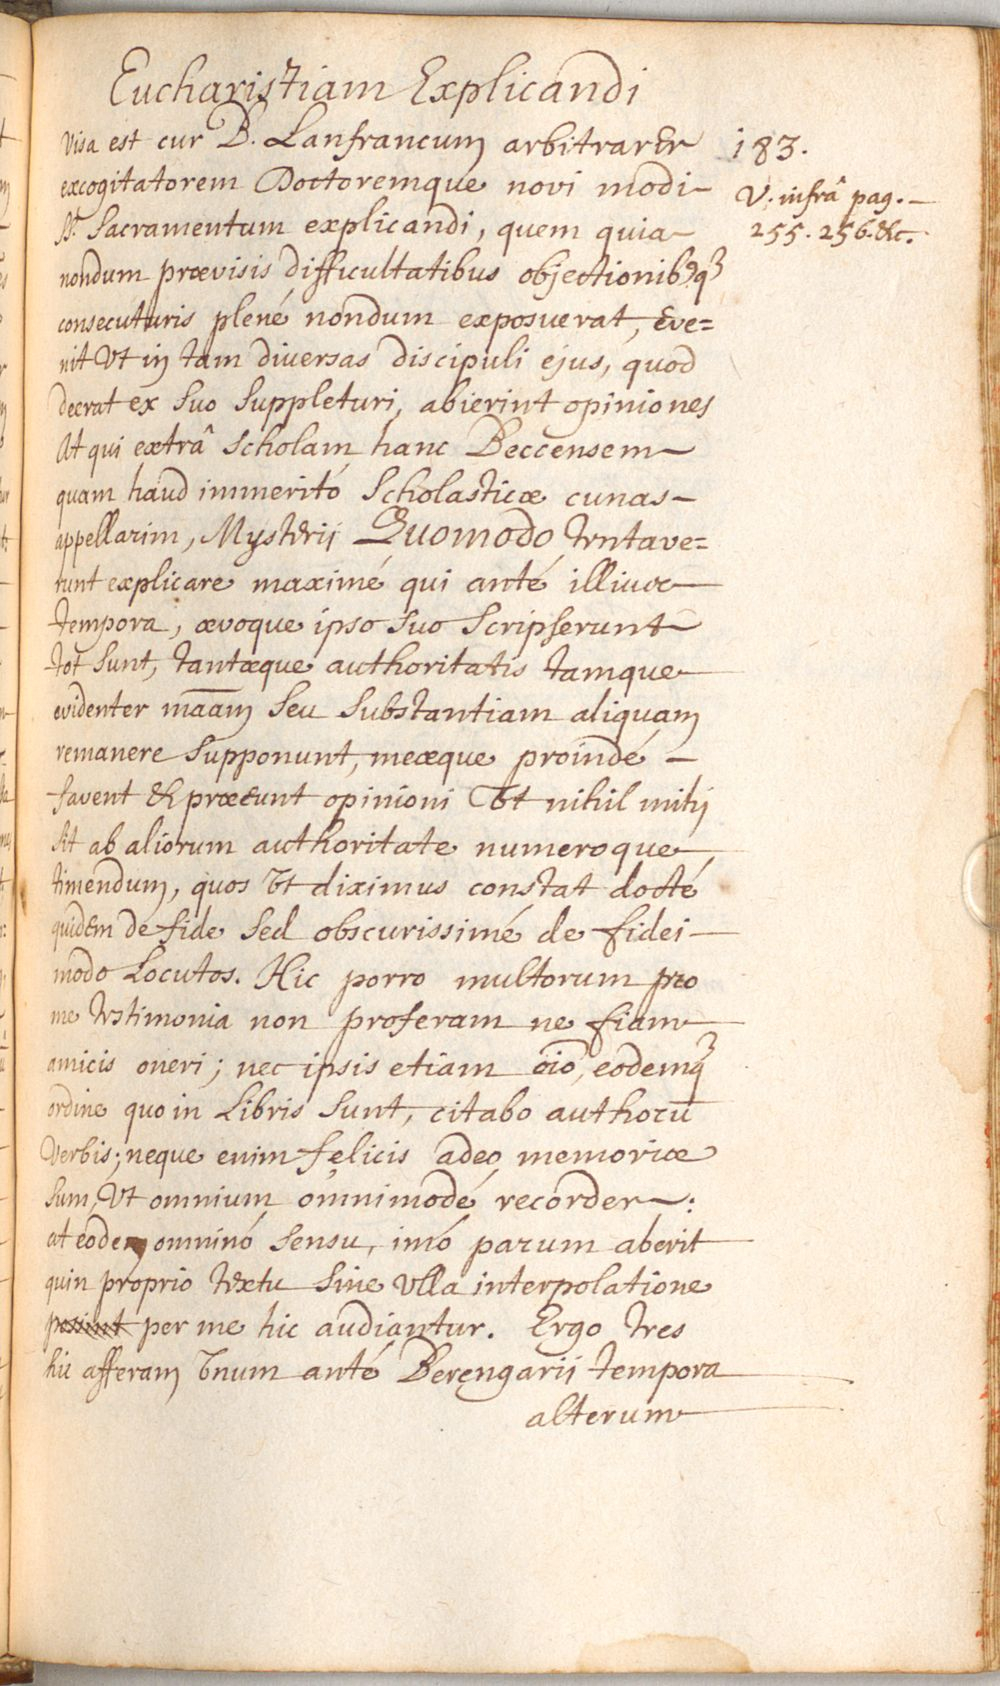 Eucharistiam Explicandi
visa est cur B. Lanfrancum arbitrarer
183.
excogitatorem Doctoremque novi modi
V. infrâ pag.
SS. Sacramentum explicandi, quem quia
255. 256. &c.
nondum prævisis difficultatibus objectionibꝰqꝫ
consecuturis plené nondum exposuerat, eve=
nit Ut in tam diversas discipuli ejus, quod
deerat ex suo suppleturi, abierint opiniones
At qui extrâ scholam hanc Beccensem
quam haud immeritó Scholasticæ cunas
appellarim, Mysterii Quomodo tentave=
runt explicare maximé qui anté illius
tempora, ævoque ipso suo scripserunt
tot sunt, tantæque authoritatis tamque
evidenter mããm seu substantiam aliquam
remanere supponunt, meæque proindé
favent & præeunt opinioni Ut nihil mihi
sit ab aliorum authoritate numeroque
timendum, quos Ut diximus constat docté
quidem de fide sed obscurissimé de fidei
modo Locutos. Hic porro multorum pro
me testimonia non proferam ne fiam
amicis oneri; nec ipsis etiam oĩo, eodemqꝫ
ordine quo in Libris sunt, citabo authorũ
Verbis; neque enim felicis adeo memoriæ
sum, Ut omnium omnimodé recorder:
at eodem omninó sensu, imó parum aberit
quin proprio textu sine Ulla interpolatione
possint per me hic audiantur. Ergo tres
hic afferam Unum anté Berengarii tempora
alterum